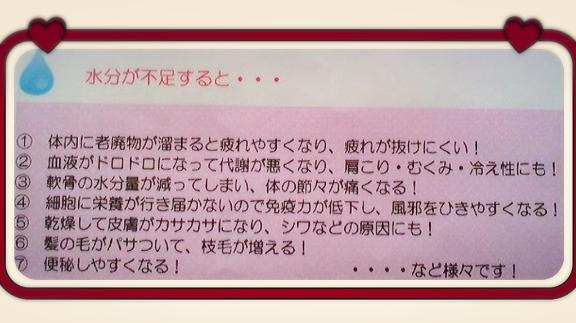 水分が不足すると・・・
① 体内に老廃物が溜まると疲れやすくなり、疲れが抜けにくい！
② 血液がドロドロになって代謝が悪くなり、肩こり・むくみ・冷え性にも！
③ 軟骨の水分量が減ってしまい、体の節々が痛くなる！
④ 細胞に栄養が行き届かないので免疫力が低下し、風邪をひきやすくなる！
⑤ 乾燥して皮膚がカサカサになり、シワなどの原因にも！
⑥ 髪の毛がパサついて、枝毛が増える！
⑦ 便秘しやすくなる！ ・・・・など様々です！